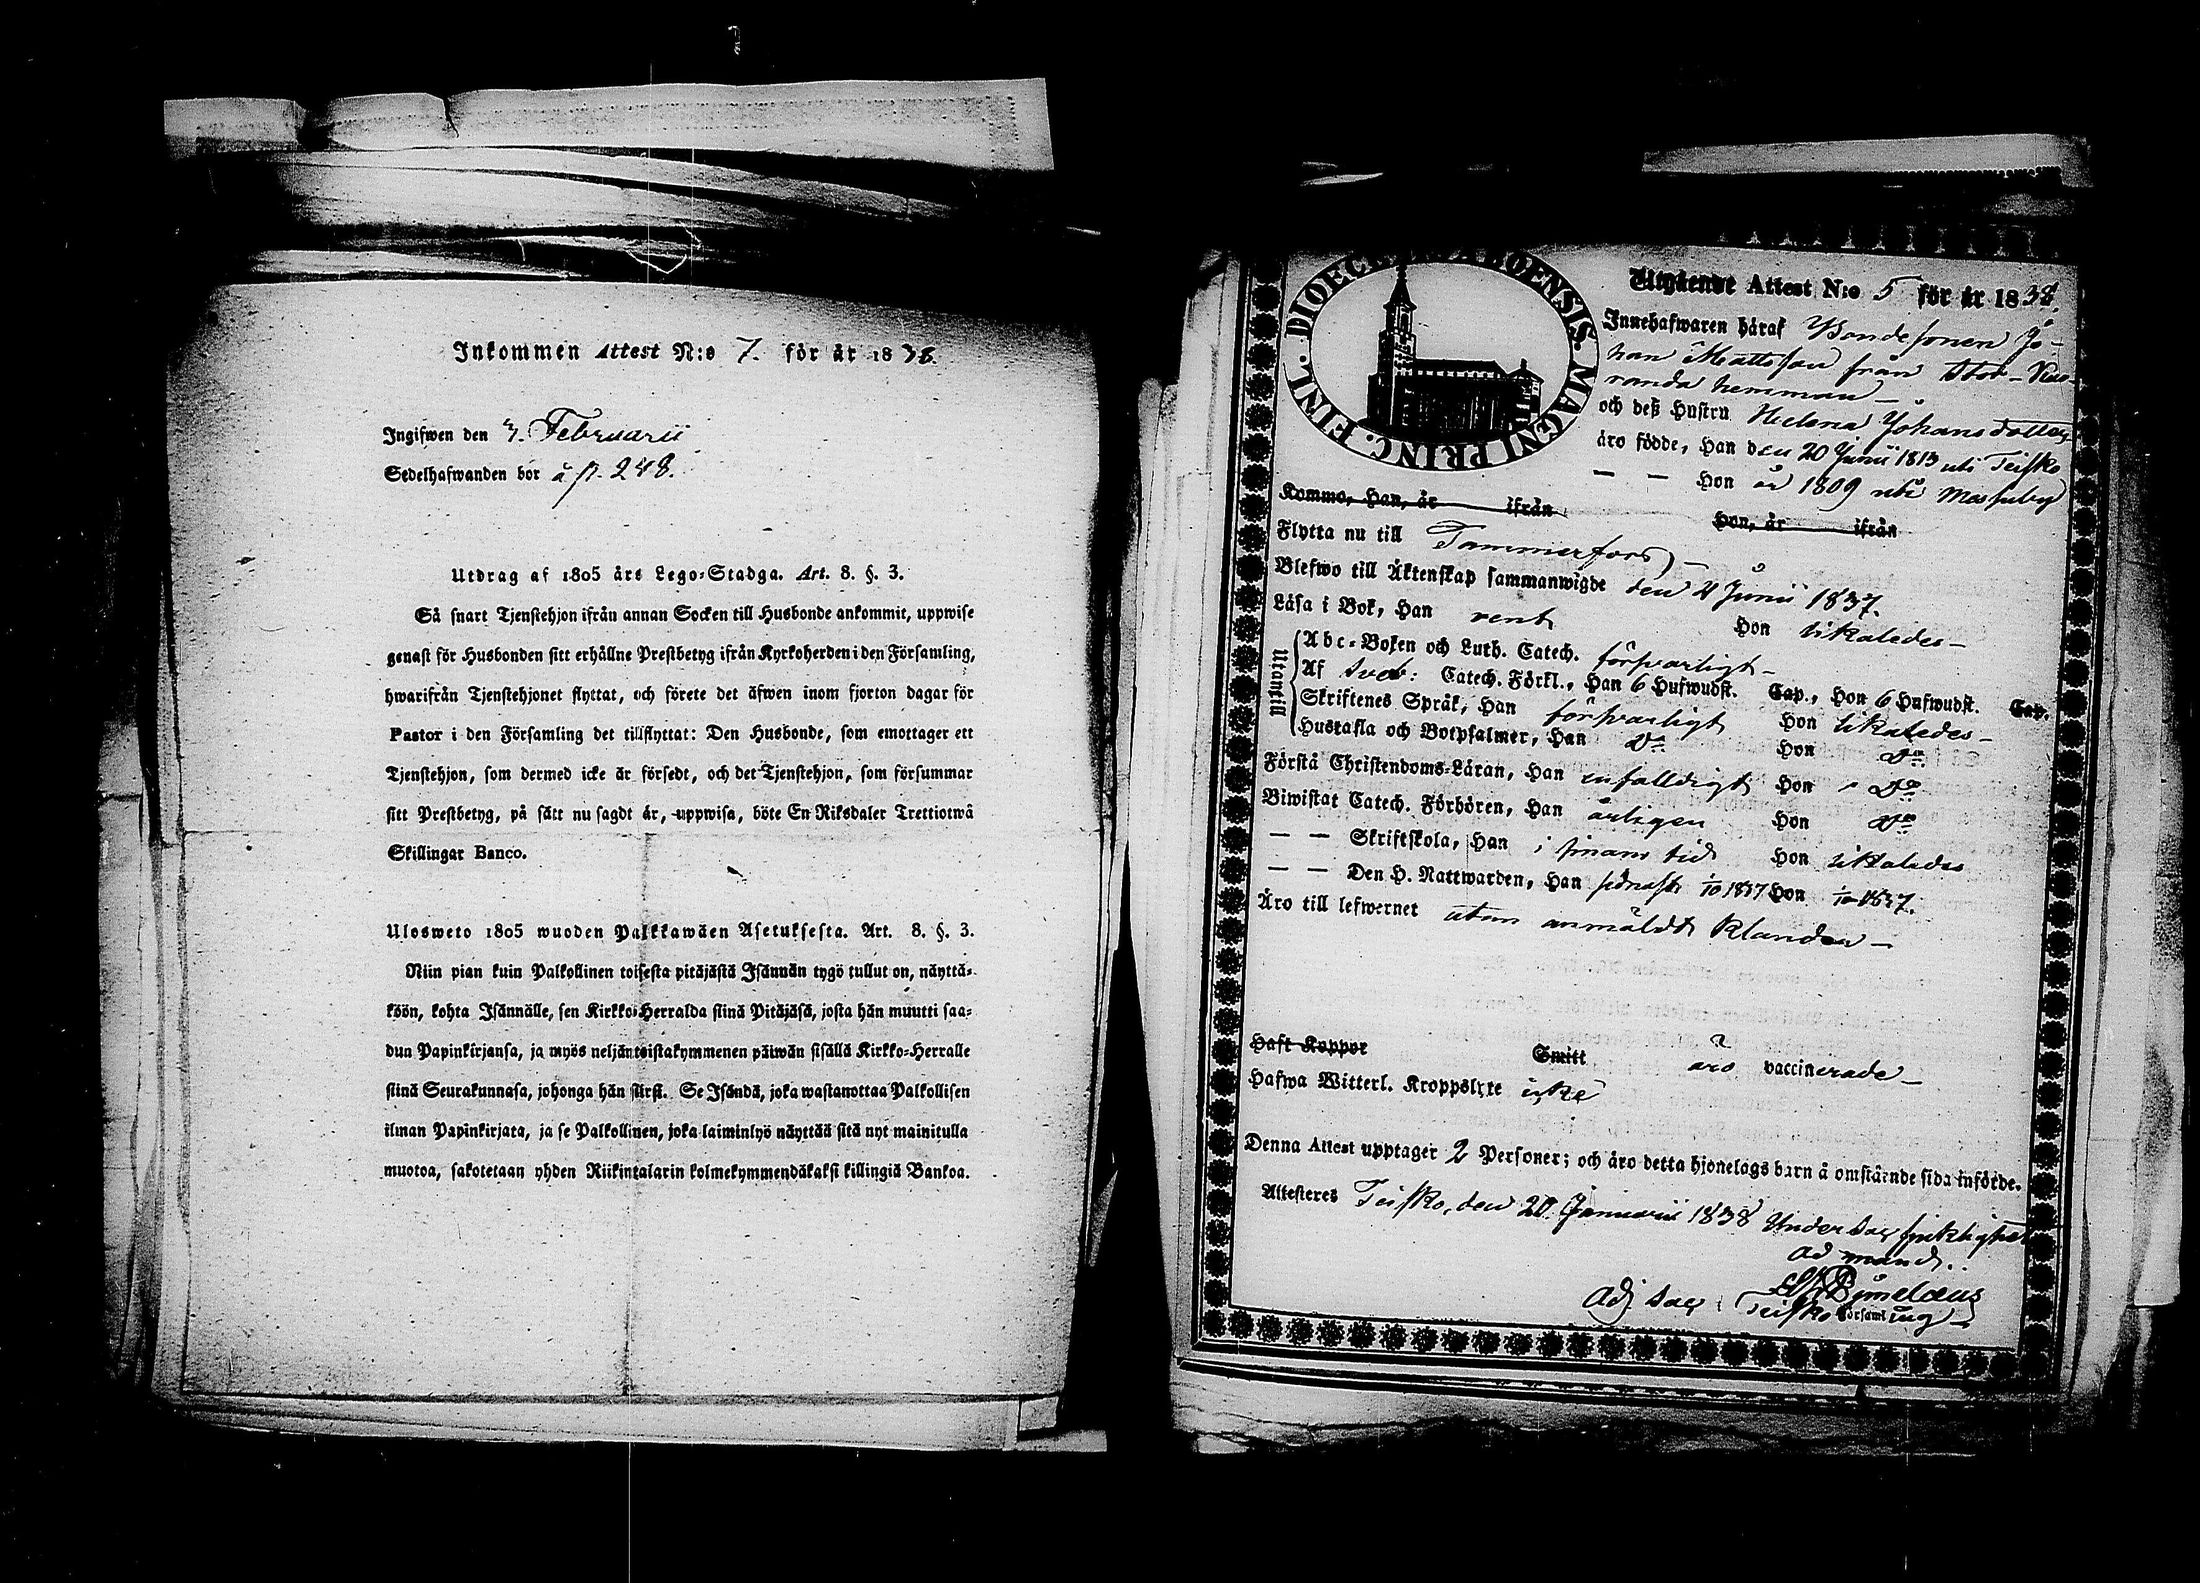 Inkommen Attest N:o 7. för år 1838.
Ingifwen den 7. Februarii
Sedelhafwanden bor å p. 248.
Utdrag af 1805 års Lego-Stadga. Art. 8. §. 3.
Så snart Tjenstehjon ifrån annan Socken till Husbonde ankommit, uppwise
genast för Husbonden sitt erhållne Prestbetyg ifrån Kyrkoherden i den Församling,
hwarifrån Tjenstehjonet flyttat, och förete det äfwen inom fjorton dagar för
Pastor i den Församling det tillflyttat: Den Husbonde, som emottager ett
Tjenstehjon, som dermed icke är försedt, och det Tjenstehjon, som försummar
sitt Prestbetyg, på sätt nu sagdt är, uppwisa, böte En Riksdaler Trettiotwå
Skillingar Banco.
Ulosweto 1805 wuoden Palkkawäen Asetuksesta. Art. 8. §. 3.
Niin pian kuin Palkollinen toisesta pitäjästä Isännän tygö tullut on, näyttä-
köön, kohta Isännälle, sen Kirkko-Herralda siinä Pitäjäsä, josta hän muutti saa-
dun Papinkirjansa, ja myös neljäntoistakymmenen päiwän sisällä Kirkko-Herralle
siinä Seurakunnasa, johonga hän siirsi. Se Isändä, joka wastanottaa Palkollisen
ilman Papinkirjata, ja se Palkollinen, joka laiminlyö näyttää sitä nyt mainitulla
muotoa, sakotetaan yhden Riikintalarin kolmekymmendäkaksi killingiä Bankoa.
DIOECES ABOENSIS. MAGNI PRINC. FINL.
Utgående Attest N:o 5 för år 1838.
Innehafwaren häraf Bondesonen Jo-
han Mattsson från Stor-
randa hemman
och deß Hustru Helena Johansdotter
äro födde, Han den 20 Junii 1813 uti Teisko
— — Hon år 1809 uti Messuby
Komme, Han, år ifrån
Hon, år ifrån
Flytta nu till Tammerfors
Blefwo till Äktenskap sammanwigde den 4 Junii 1837.
Läsa i Bok, Han rent Hon likaledes —
Utantill
Abc-Boken och Luth. Catech. försvarligt —
Af Sveb: Catech. Förkl., Han 6 Hufwudst. Cap., Hon 6 Hufwudst. Cap.
Skriftenes Språk, Han försvarligt Hon likaledes —
Hustafla och Botpsalmer, Han Do Hon Do
Förstå Christendoms-Läran, Han enfaldigt Hon Do
Biwistat Catech. Förhören, Han årligen Hon Do
— — Skriftskola, Han i sinom tid Hon likaledes
— — Den H. Nattwarden, Han sednast 1/10 1837 Hon 1/10 1837.
Äro till lefwernet utan anmäldt klander —
Haft Koppor Smitt äro vaccinerade —
Hafwa Witterl. Kroppslyte icke
Denna Attest upptager 2 Personer; och äro detta hjonelags barn å omstående sida införde.
Attesteres Teisko, den 20 Januarii 1838 Under Sac
Ad mand.
Adj. Sac. i Teisko Församling —